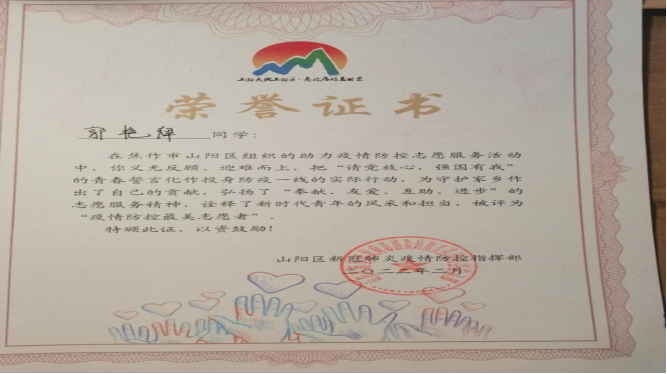 荣誉证书
郭艳萍 同学：
在焦作市山阳区组织的助力疫情防控志愿服务活动
中，你义无反顾、迎难而上，把“请党放心，强国有我”
的青春誓言化作投身防疫一线的实际行动，为守护家乡作
出了自己的贡献，弘扬了“奉献、友爱、互助、进步”的
志愿服务精神，诠释了新时代青年的风采和担当，被评为
“疫情防控最美志愿者”。
特颁此证，以资鼓励！
山阳区新冠肺炎疫情防控指挥部
二〇二二年二月